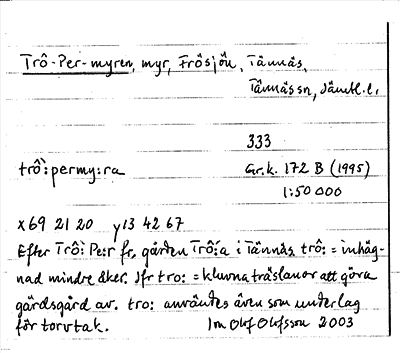 Trô-Per-myren, myr, Frösjön, Tännäs,
Tännäs sn, Jämtl. l.
333
trô:permy:ra Gr.k. 172 B (1995)
1:50 000
x 69 21 20 y 13 42 67
Efter Trô: Pe:r fr. gården Trô:a i Tännäs. trô: = inhäg-
nad mindre åker. Jfr tro: = kluvna träslanor att göra
gärdsgård av. tro: användes även som underlag
för torvtak. Im Olof Olofsson 2003